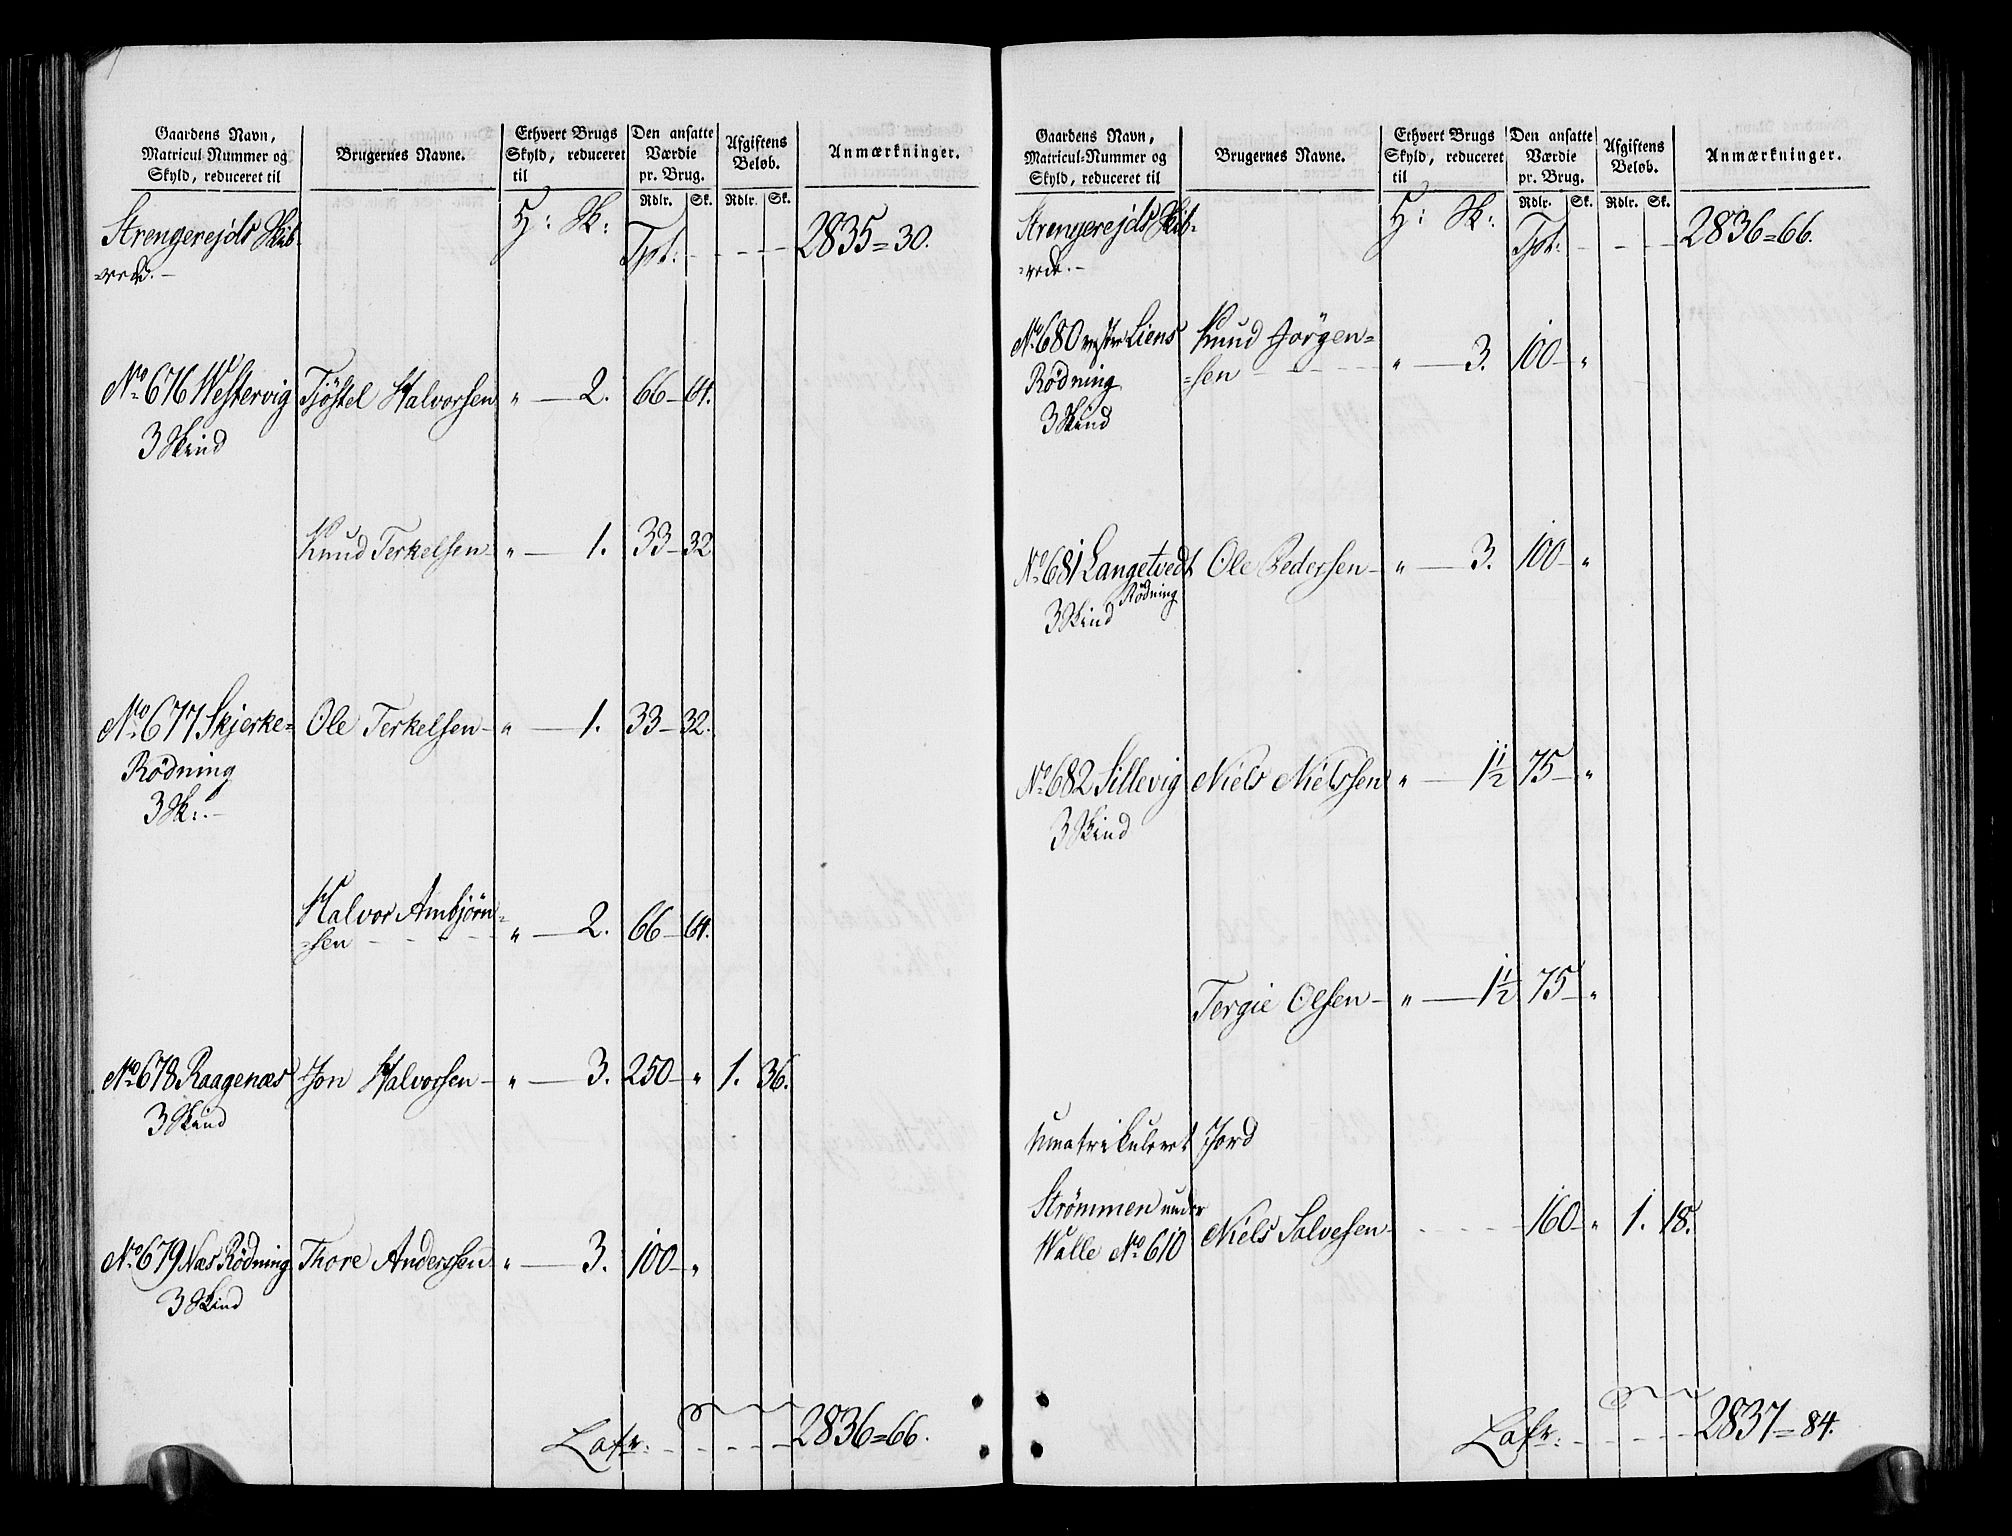 Gaardens Navn,
Matricul-Nummer og
Skyld, reduceret til
Brugernes Navne.
Ethvert Brugs
Skyld, reduceret
til
Den ansatte
Værdie
pr. Brug.
Afgiftens
Beløb.
Anmærkninger.
Rdlr. Sk. Rdlr. Sk.
Strengerejds Skib-
=rede.
H: Sk:
Tpt: 2835=30.
No 676 Westervig Tjöstel Halvorsen " — 2. 66 — 64.
3 Skind
Knud Terkelsen — " — 1. 33 — 32
No 677 Skjerke= Ole Terkelsen — " — 1. 33 — 32.
Rödning
3 Sk: —
Halvor Ambjörn=
=sen " — 2. 66 — 64.
No 678 Raagenæs Jon Halvorsen — " — 3. 250 — " 1. 36.
3 Skind
No 679 Næs Rödning Thore Anderssen " — 3. 100 — "
3 Skind
Lafr: 2836=66.
Gaardens Navn,
Matricul-Nummer og
Skyld, reduceret til
Brugernes Navne.
Ethvert Brugs
Skyld, reduceret
til
Den ansatte
Værdie
pr. Brug.
Afgiftens
Beløb.
Anmærkninger.
Rdlr. Sk. Rdlr. Sk.
Strengerejds Skib=
=rede. —
H: Sk:
Tpt: 2836=66.
No 680 vestre Liens Knud Jörgen=
Rödning =sen " — 3. 100 — "
3 Skind
No 681 Langetvedt Ole Pedersen — " — 3. 100 — "
Rödning
3 Skind
No 682 Sillevig Niels Nielssen " — 1½ 75 — "
3 Skind
Tergie Olsen — " — 1½ 75 — "
Umatrikuleret Jord
Strömmen under
Walle No 610 Niels Salvesen 160 — " 1. 18.
Lafr: 2837=84.